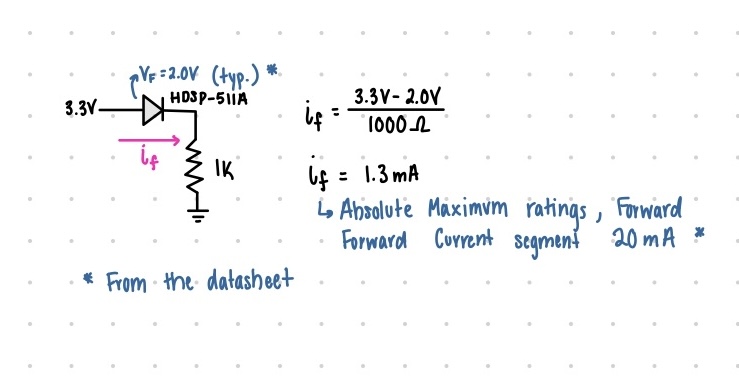 VF = 2.0V (typ.) *
HDSP-511A
3.3V
if
1K
if = 3.3V - 2.0V / 1000 Ω
if = 1.3 mA
↳ Absolute Maximum ratings, Forward
Forward Current segment 20 mA *
* From the datasheet